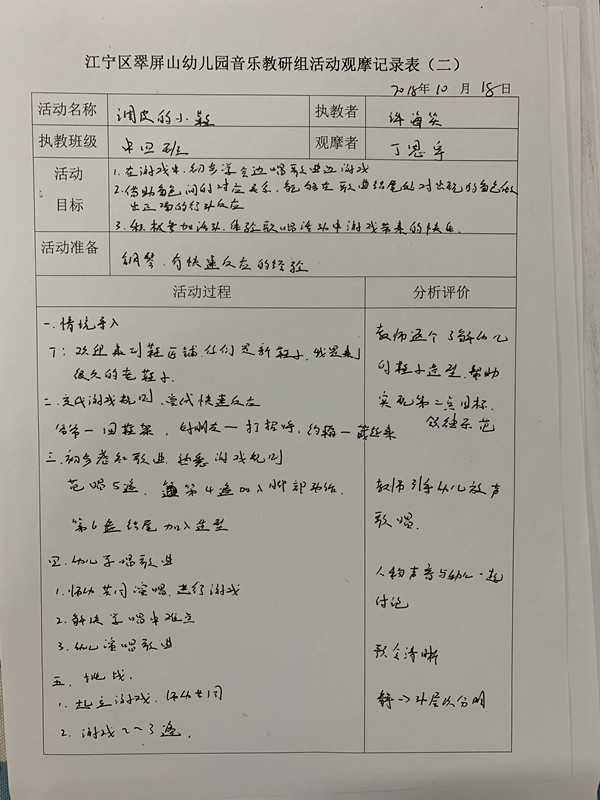 江宁区翠屏山幼儿园音乐教研组活动观摩记录表（二）
2018年10月18日
活动名称 调皮的小鞋 执教者 海英
执教班级 中四班 观摩者 丁恩幸
活动目标
1.在游戏中,初步学会边唱歌曲边游戏
2.借助角色间的对应关系,能够在歌曲结尾处对出现的角色做
出正确的行动反应
3.积极参加活动,体验歌唱活动中游戏带来的快乐.
活动准备 钢琴、有快速反应的经验
活动过程 分析评价
一.情境导入
T:欢迎来到鞋匠铺,你们是新鞋子,我是来了
很久的老鞋子.
教师逐个了解幼儿
的鞋子造型,帮助
实现第二点目标.
二.交代游戏规则
快速反应
回鞋架 打招呼
三.初步感知歌曲,熟悉游戏规则
范唱5遍. 第4遍加入脚部动作.
第6遍结尾加入造型
教师引导幼儿放声
歌唱.
四.幼儿学唱歌曲
1.师幼共同演唱,进行游戏
2.解决学唱中难点
3.幼儿演唱歌曲
声音与幼儿一起
讨论
五.挑战.
1.起立游戏.师幼共同
2.游戏2~3遍.
清晰
静→动层次分明